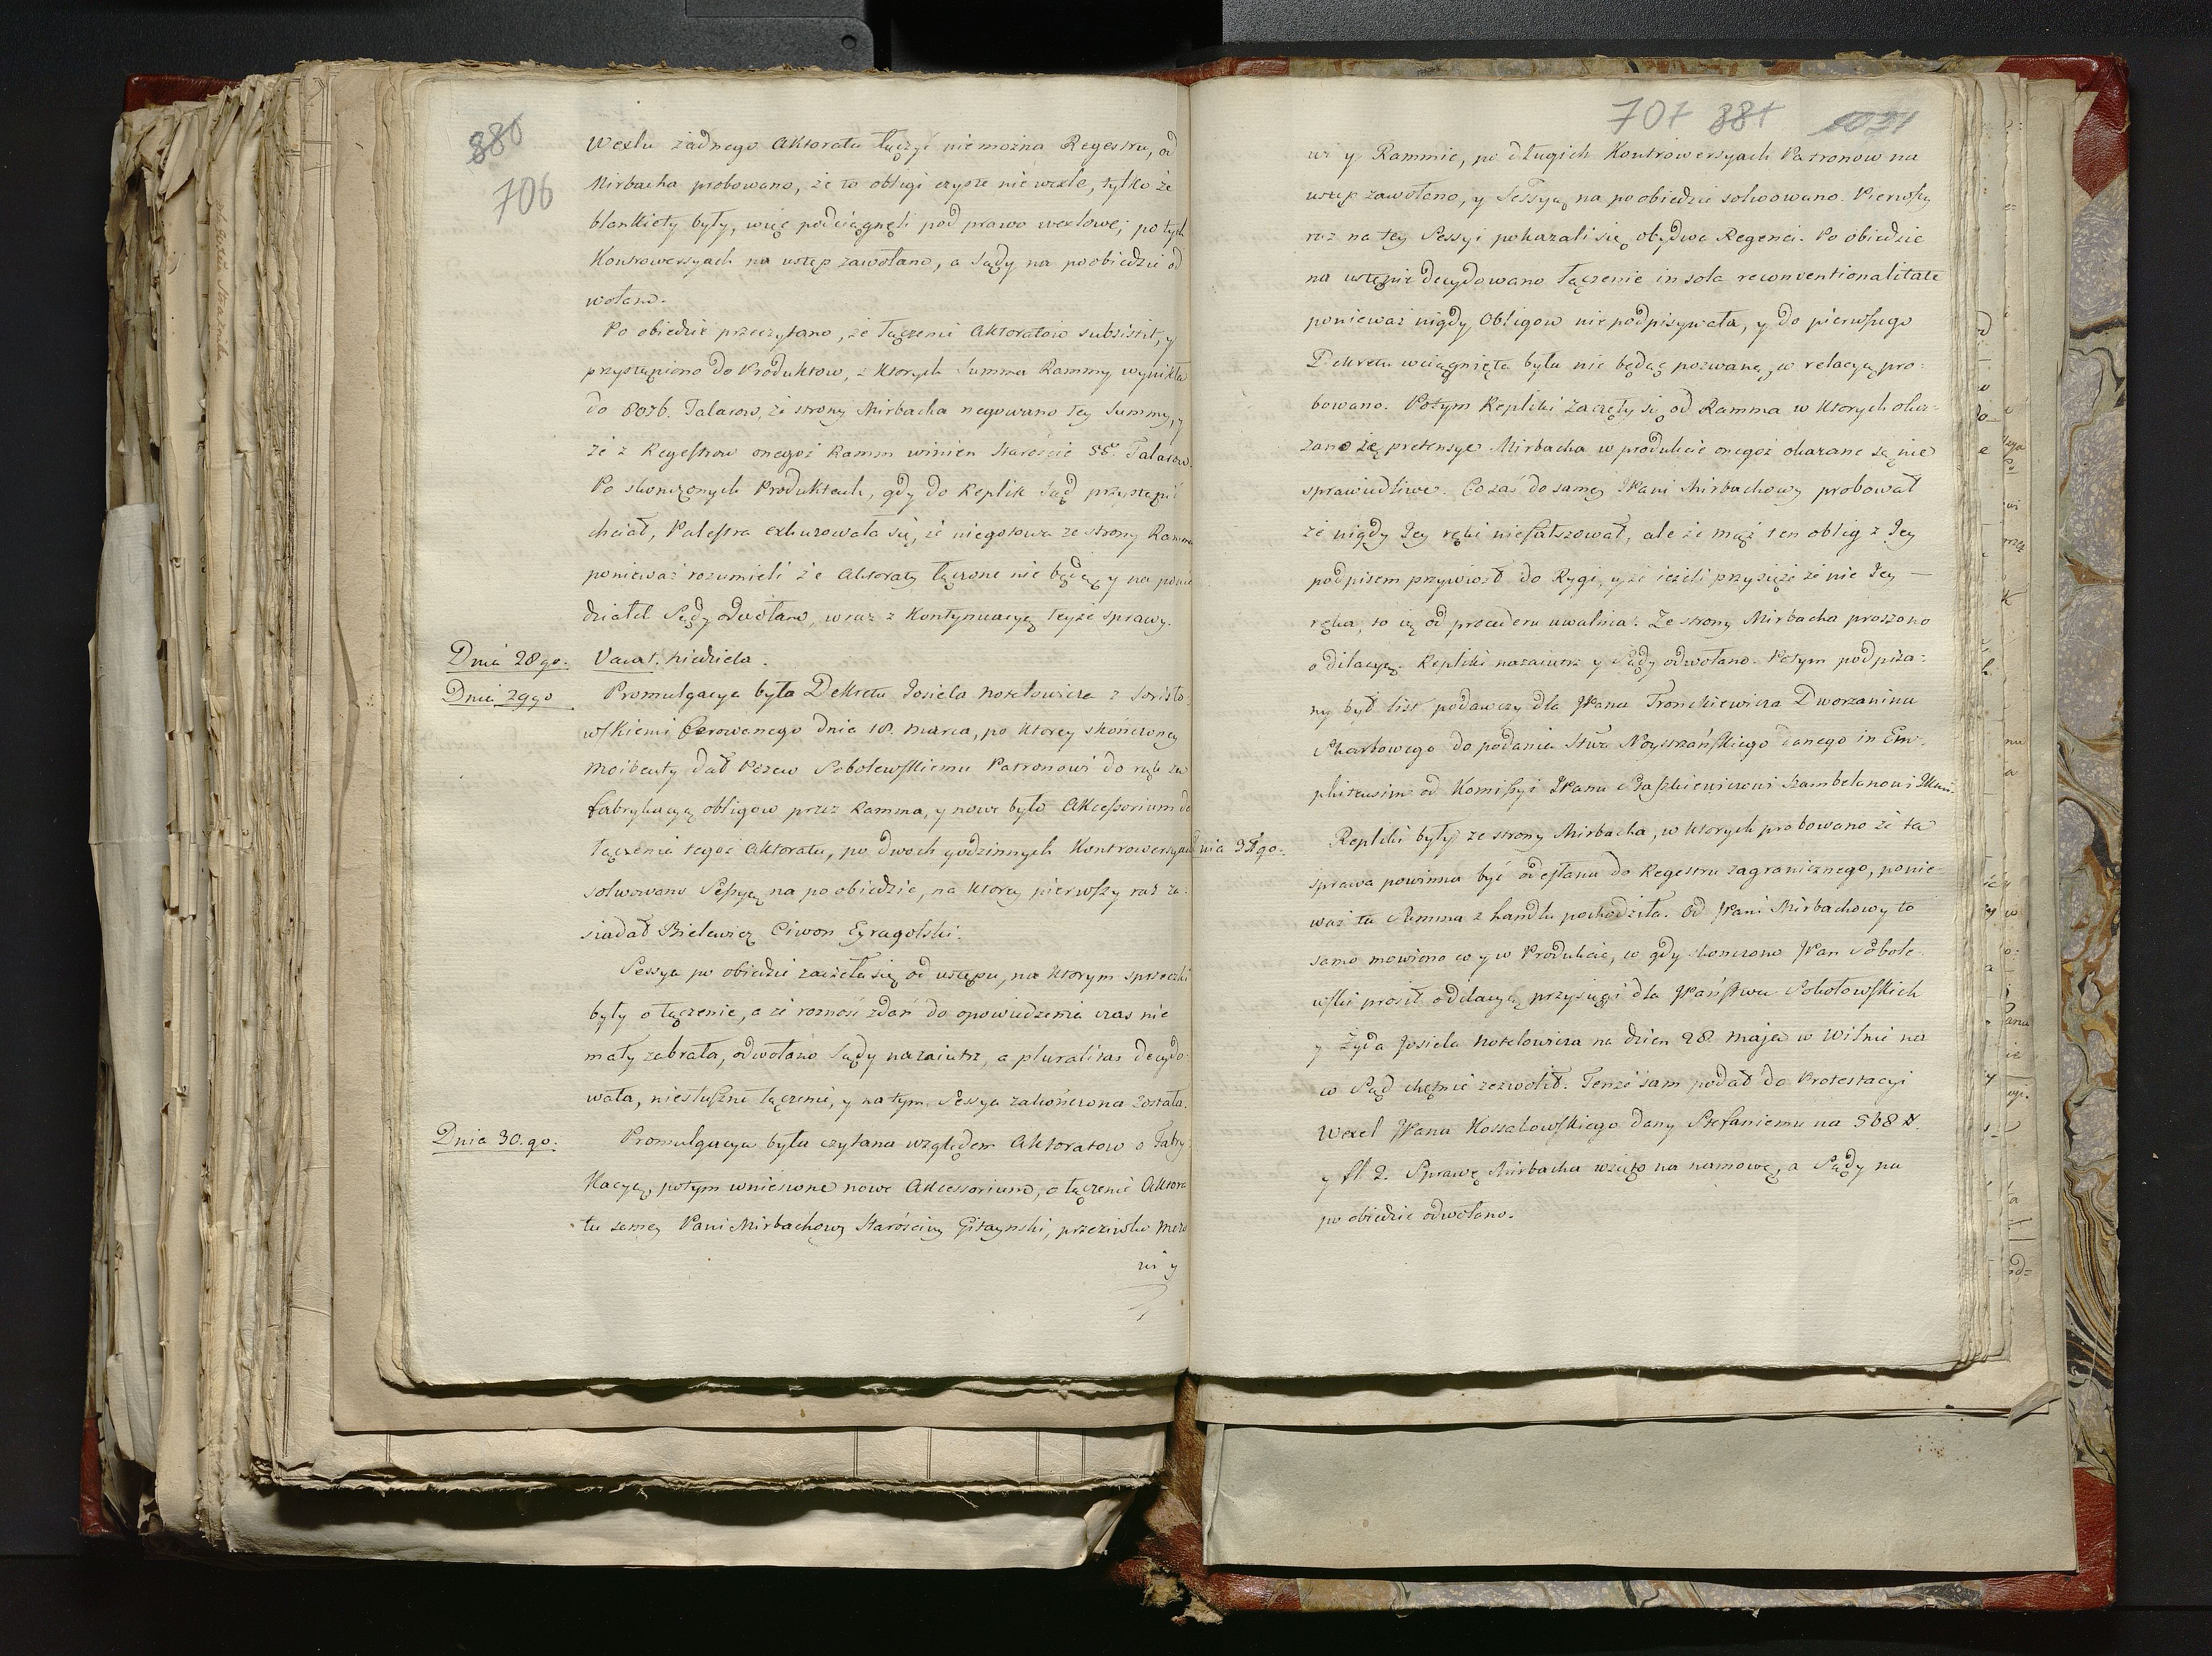 880
706
Wexlu żadnego Aktoratu łączyć niemożna Regestru, od
Mirbacha probowano, że to obligi czyste nie wexle, tylko że
blankiety były, więc podciągnęli pod prawo wexlowe; po tych
Kontrowersyach na ustęp zawołano, a Sądy na poobiedzie od
wołano.
Po obiedzie przeczytano, że łączenie Aktoratow subsistit, y
przystąpiono do Produktow, z ktorych Summa Rammy wynikła
do 6076. Talarow, ze strony Mirbacha negowano tey Summy, y
że z Regestrow onegoż Ramm winien Staroście 55. Talarow.
Po skonczonych Produktach, gdy do Replik Sąd przystąpić
chciał, Palestra exkuzowała się, że niegotowa ze strony Ramma
ponieważ rozumieli że Aktoraty łączone nie będą, y na ponie
działek Sądy odwołano, wraz z kontynuacyą teyże sprawy.
Dnia 28go. Vacat. Niedziela.
Dnia 29go Promulgacya była Dekretu Josiela Notelowicza z
wskiemi ferowanego dnia 18. Marca, po ktorey skończoney
Moibenty dał Pozew Sobolewskiemu Patronowi do rąk za
fabrykacyą obligow przez Ramma, y nowe było Akcessorium do
łączenia tegoż Aktoratu, po dwoch godzinnych Kontrowersyach
solwowano Sessyą na po obiedzie, na ktorey pierwszy raz za-
siadał Bielewicz Ciwon Eyragolski.
Sessya po obiedzie zaczęła się od ustępu, na ktorym sprzeczki
były o łączenie, a że rozność zdań do opowiedzenia czas nie
mały zabrała, odwołano Sądy nazaiutrz, a pluralitas decydo-
wała, niesłuszne łączenie, y na tym Sessya zakończona została.
Dnia 30.go. Promulgacya była czytana względem Aktoratow o Fabry
kacyą, potym wniesione nowe Akcessorium, o łączenie Aktora
tu samey Pani Mirbachowy Starościny , przeciwko
wi y
707 881 1031
wi y Rammie, po długich Kontrowersyach Patronow na
ustęp zawołano, y Sessyą na poobiedzie solwowano. Pierwszy
raz na tey Sessyi pokazali się obydwa Regenci. Po obiedzie
na ustępie decydowano łączenie in sola reconventionalitate
ponieważ nigdy Obligow niepodpisywała, y do pierwszego
Dekretu wciągnięta była nie będąc pozwaną, w relacyą pro-
bowano. Potym Repliki zaczęły się od Ramma w ktorych oka-
zano że pretensye Mirbacha w produkcie onegoż okazane są nie
sprawiedliwe. Co zaś do samey JPani Mirbachowy probował
że nigdy Jey ręki niefałszował, ale że mąż ten oblig z Jey
podpisem przywiozł do Rygi, y że ieżeli przysięże że nie Jey —
ręka, to ią od procederu uwalnia. Ze strony Mirbacha proszono
o dilacyą. Repliki nazaiutrz y Sądy odwołano. Potym podpisa-
ny był list podawczy dla JPana Fronckiewicza Dworzanina
Skarbowego do podania Stwa Noyszańskiego danego in Em-
phiteusim od Komissyi JPanu Paszkiewiczowi Szambelanowi
Dnia 31go. Repliki były ze strony Mirbacha, w ktorych probowano że ta
sprawa powinna być odesłana do Regestru zagranicznego, ponie-
waż ta Summa z handlu pochodziła. Od JPani Mirbachowy to
samo mowiono co y w Produkcie, co gdy skonczono JPan Sobole-
wski prosił o dilacyą przysięgi dla JPaństwa Sokołowskich
y Żyda Josiela Notelowicza na dzien 28. Maja w Wilnie na
co Sąd chętnie zezwolił. Tenże sam podał do Protestacyi
Wexel JPana Kossakowskiego dany Stefaniemu na 568
y fl 2. Sprawę Mirbacha wzięto na namowę, a Sądy na
po obiedzie odwołano.